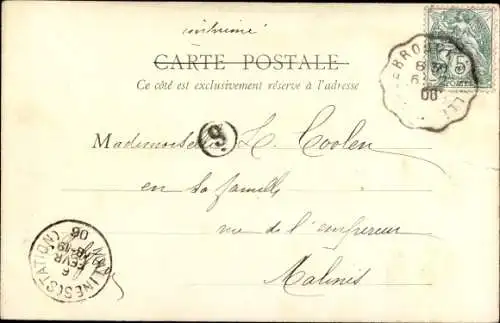 imprimé
CARTE POSTALE
Ce côté est exclusivement réservé à l'adresse
S
Mademoiselle L. Coolen
en sa famille
rue de l'empereur
Malines
5
POSTE
MALINES (STATION)
6
FEVR
18-19
06